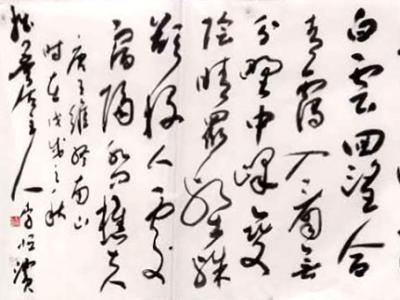 白雲回望合
青靄入看無
分野中峰變
陰晴眾壑殊
欲投人處
宿隔水問樵夫
唐王維終南山
時在戊戌之秋
主人